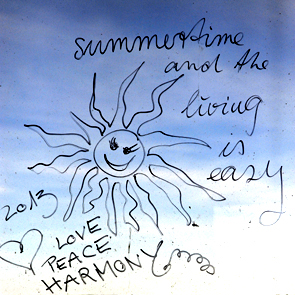 summertime
and the
living
is
easy
2013
LOVE
PEACE
HARMONY